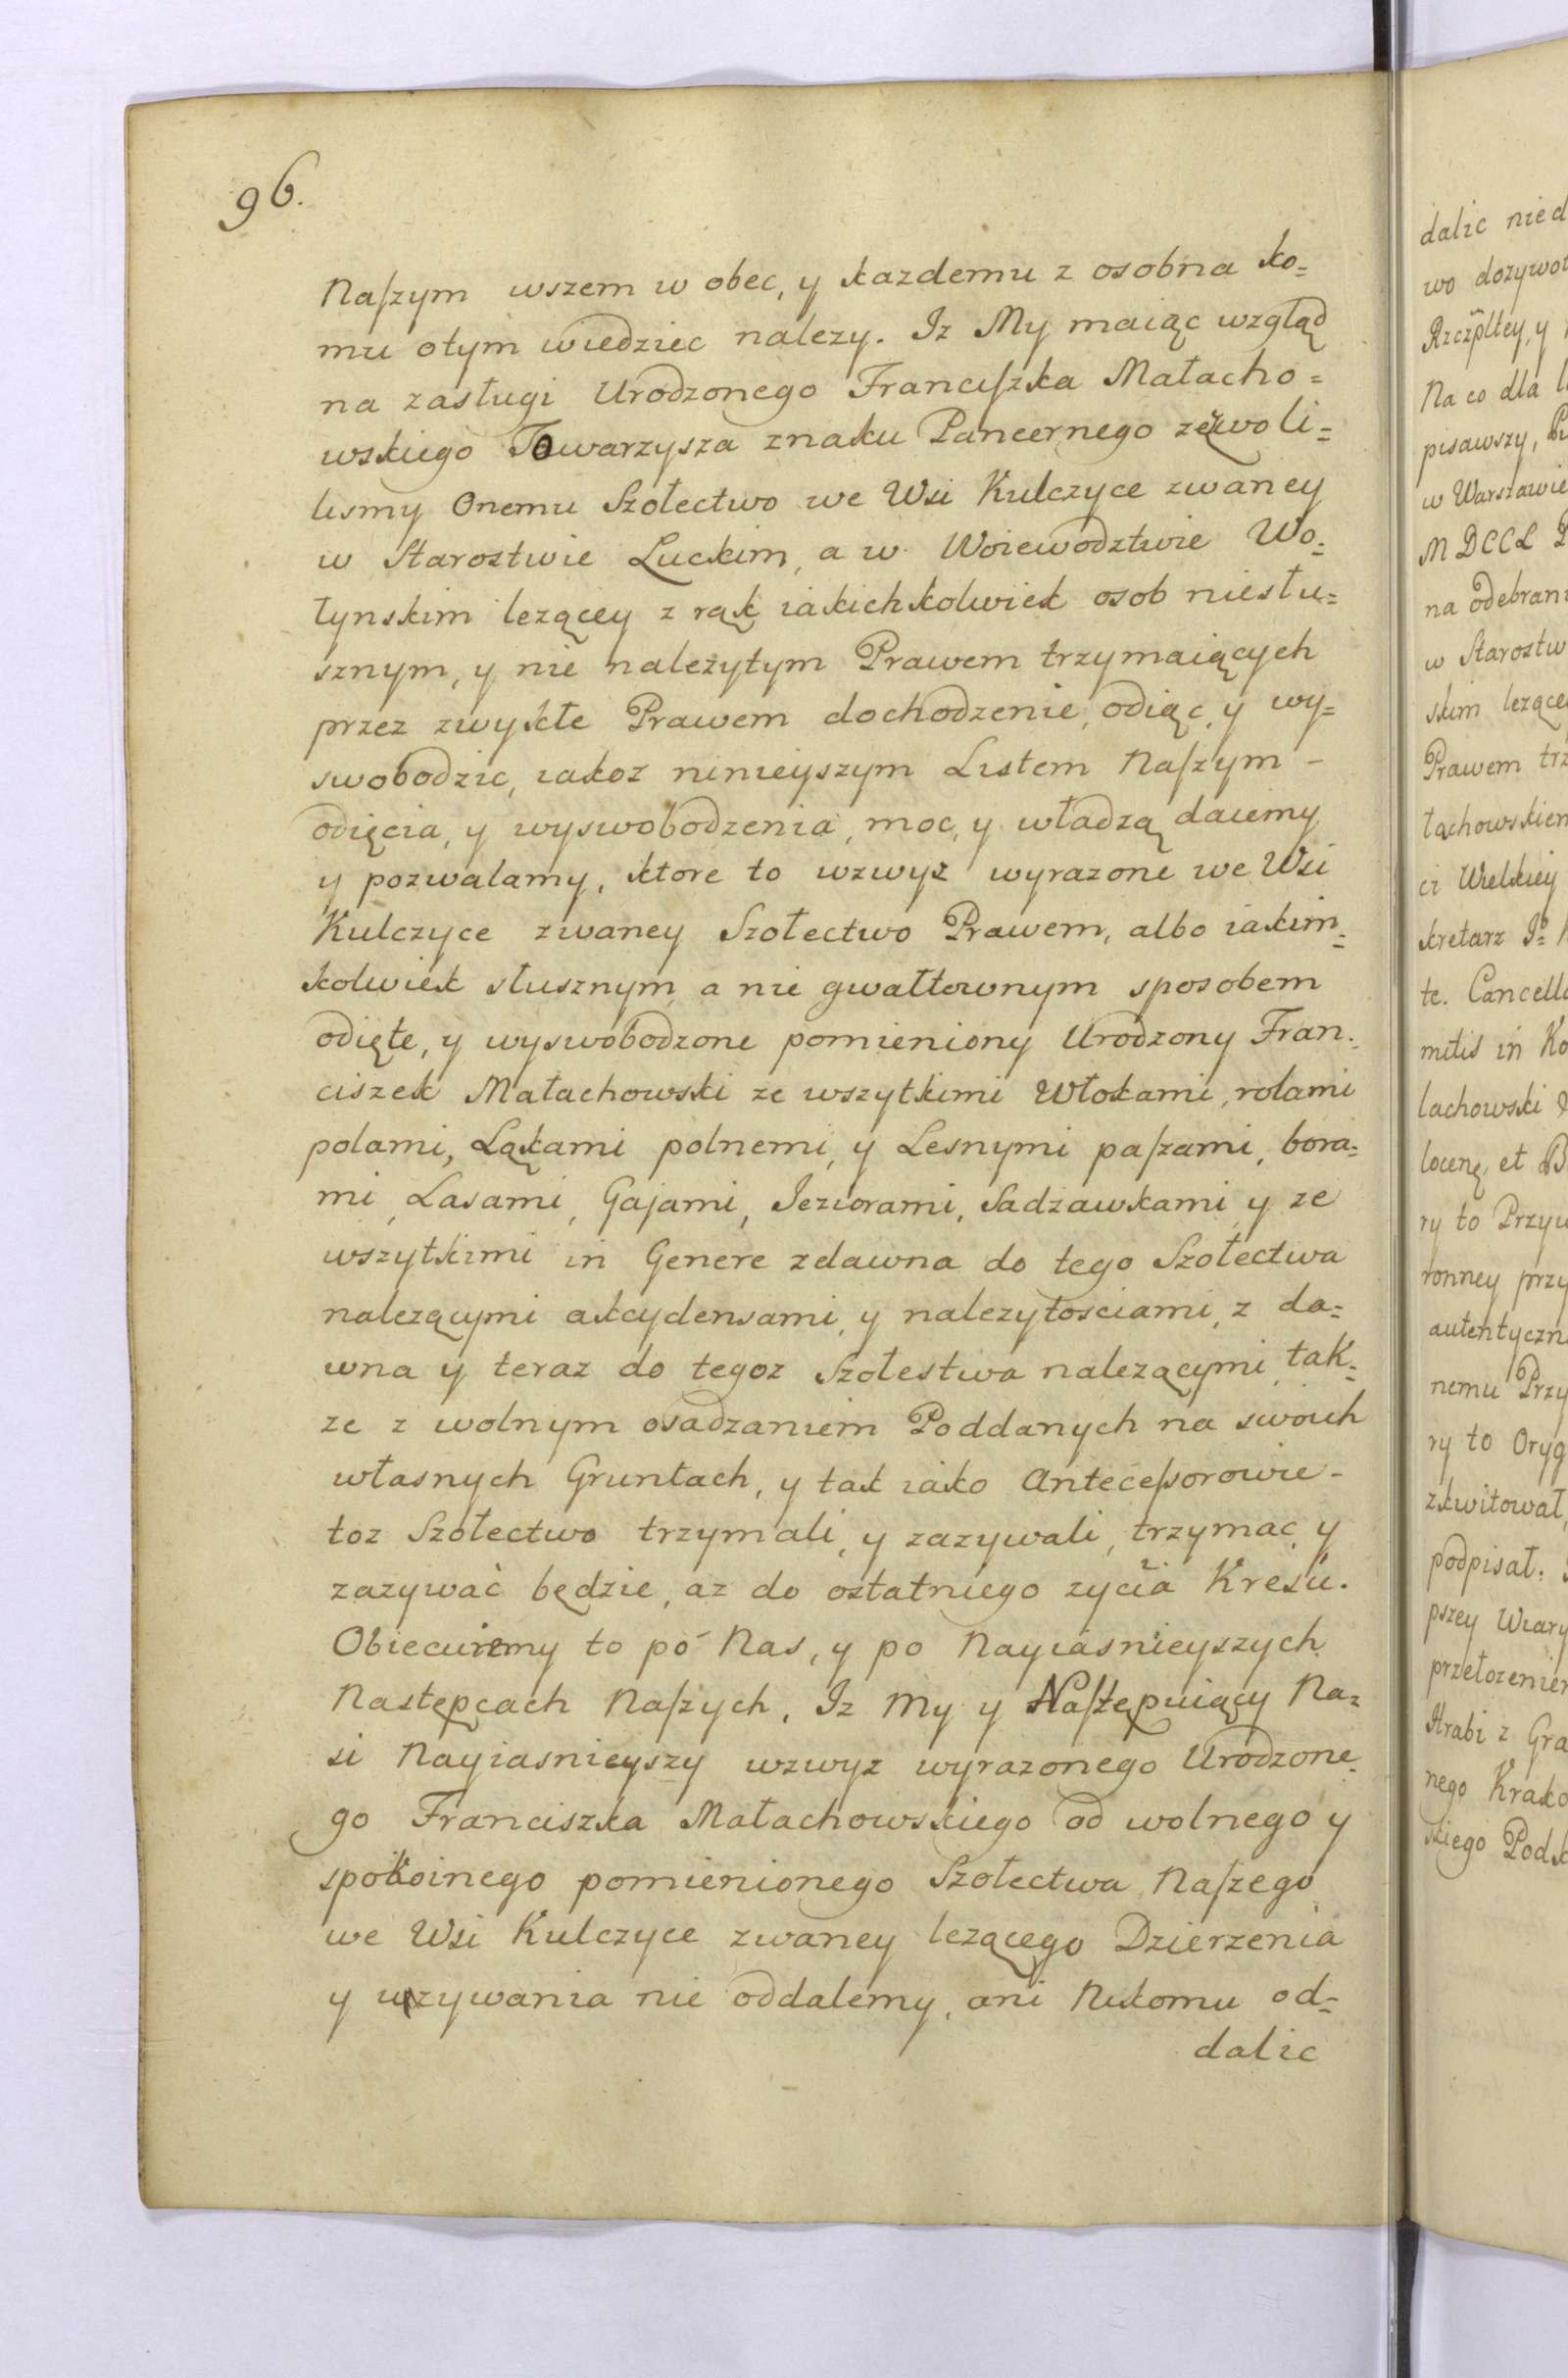 96.
Naſzym wszem w obec, y kazdemu z osobna ko=
mu otym wiedziec nalezy. Iz My maiąc wzgląd
na zasługi Urodzonego Franciſzka Małacho=
wskiego Towarzysza znaku Pancernego zezwoli=
lismy Onemu Szołectwo we Wsi Kulczyce zwaney
w Starostwie Luckim, a w Woiewodztwie Wo=
łynskim lezącey z rąk iakichkolwiek osob niesłu=
sznym, y nie nalezytym Prawem trzymaiących
przez zwykłe Prawem dochodzenie, odiąc, y wy=
swobodzic, iakoz ninieyszym Listem Naſzym -
odięcia, y wyswobodzenia, moc, y władzą daiemy
y pozwalamy, ktore to wzwyz wyrazone we Wsi
Kulczyce zwaney Szołectwo Prawem, albo iakim=
kolwiek słusznym, a nie gwałtownym sposobem
odięte, y wyswobodzone pomieniony Urodzony Fran=
ciszek Małachowski ze wszytkimi Włokami, rolami
polami, Ląkami polnemi, y Lesnymi paſzami, bora=
mi, Lasami, Gajami, Ieziorami, Sadzawkami, y ze
wszytkimi in Genere zdawna do tego Szołectwa
nalezącymi akcydensami, y nalezytosciami, z da=
wna y teraz do tegoz Szołestwa nalezącymi, tak=
ze z wolnym osadzaniem Poddanych na swoich
własnych Gruntach, y tak iako Anteceſsorowie -
toz Szołectwo trzymali, y zazywali, trzymac, y
zazywać będzie, az do ostatniego zycia Kresu.
Obiecuiemy to po Nas, y po Nayiasnieyszych
Następcach Naſzych, Iz My y Naſtępuiący Na=
si Nayiasnieyszy wzwyz wyrazonego Urodzone=
go Franciszka Małachowskiego od wolnego y
spokoinego pomienionego Szołectwa Naſzego
we Wsi Kulczyce zwaney lezącego Dzierzenia
y uzywania nie oddalemy, ani Nikomu od=
dalic
dalic nied
wo dozywot
Rzczpltey, y
Na co dla
pisawszy,
w Warszawie
MDCCL
na odebrani
w Starostw
skim lezące
Prawem trz
łachowskiem
ci Wielkiey
kretarz
te. Cancell
mitis in Ko
lachowski
locenę, et
ry to Przyw
ronney przy
autentyczn
nemu Przy
ry to Oryg
zkwitował,
podpisał.
pszey Wiary
przełozenie
Hrabi z Gra
nego Krako
skiego Podsk